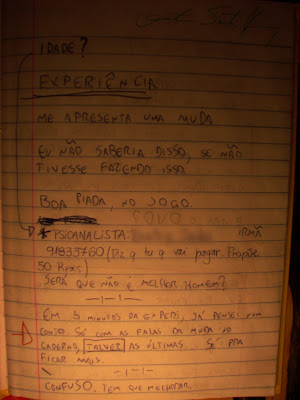 IDADE?
EXPERIÊNCIA
ME APRESENTA UMA MUDA
EU NÃO SABERIA DISSO, SE NÃO
TIVESSE FAZENDO ISSO
BOA PIADA, NO JOGO.
* PSICANALISTA: IRMÃ
91833760 (Diz q tu q vai pagar. Propõe
50 Reais)
SERÁ QUE NÃO É MELHOR HOMEM?
EM 5 MINUTOS DA EXPERI, JÁ PENSEI NUM
CONTO. SÓ COM AS FALAS DA MUDA NO
CADERNO, TALVEZ AS ÚLTIMAS... SÓ PRA
FICAR MAIS
CONFUSO. TEM QUE MELHORAR.